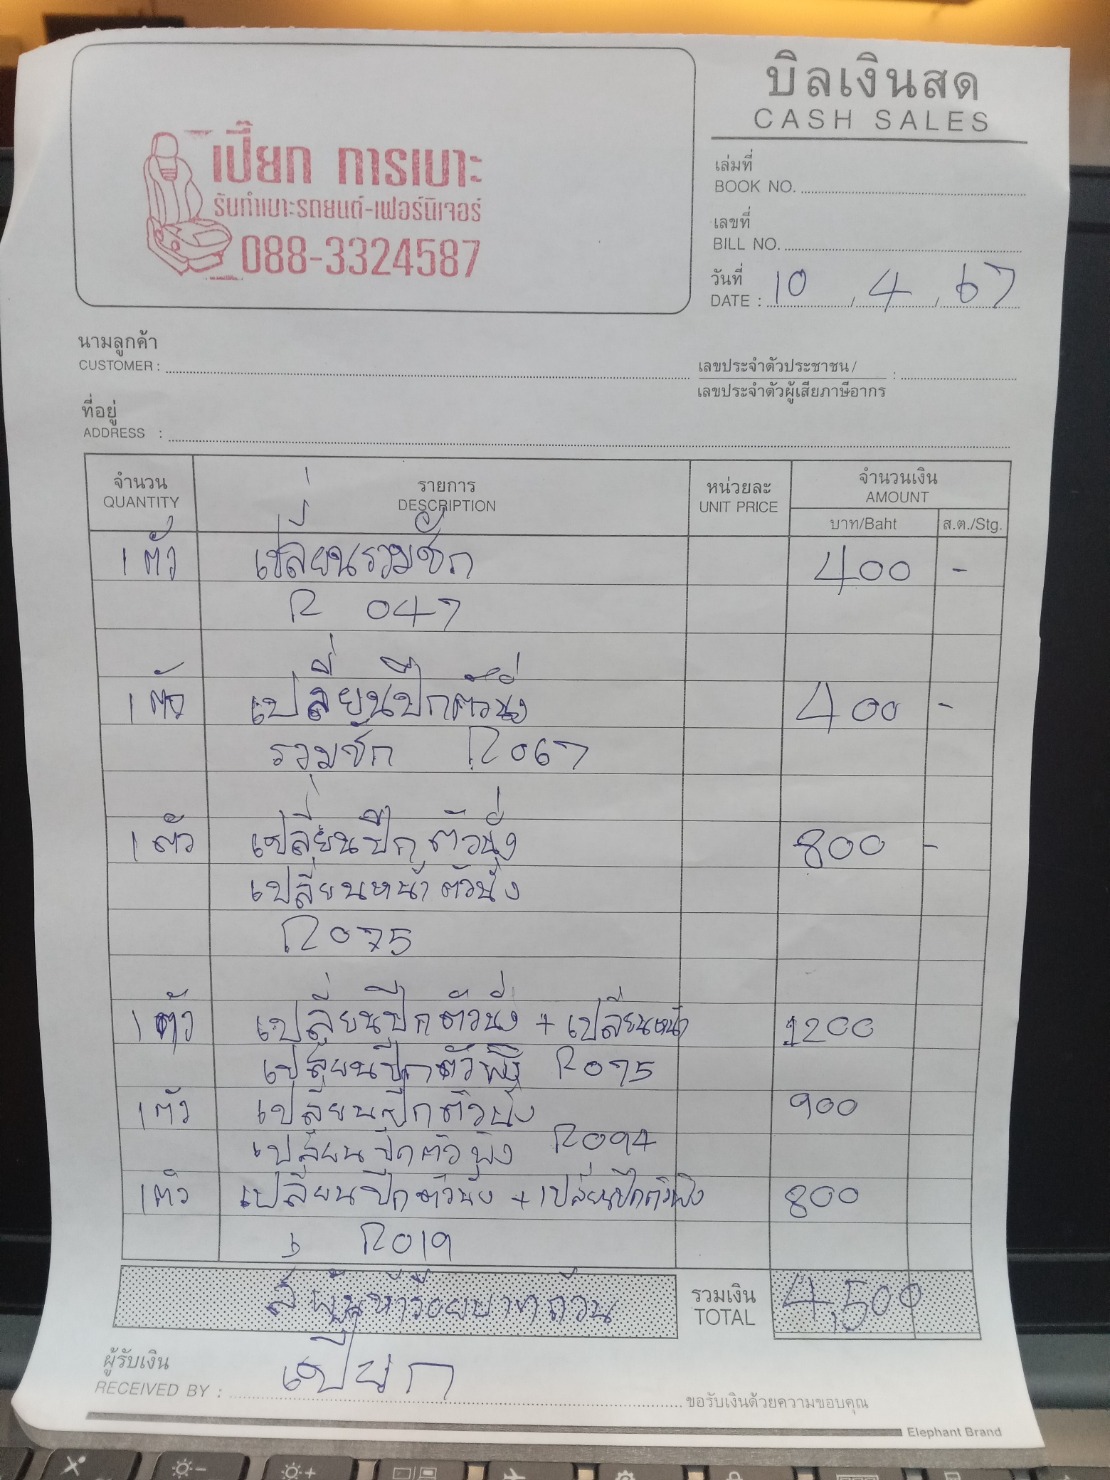 บิลเงินสด
CASH SALES
เปี๊ยก การเบาะ
รับทำเบาะรถยนต์-เฟอร์นิเจอร์
088-3324587
เล่มที่
BOOK NO.
เลขที่
BILL NO.
วันที่
DATE : 10 , 4 , 67
นามลูกค้า
CUSTOMER :
เลขประจำตัวประชาชน/
เลขประจำตัวผู้เสียภาษีอากร :
ที่อยู่
ADDRESS :
จำนวน รายการ หน่วยละ จำนวนเงิน
QUANTITY DESCRIPTION UNIT PRICE AMOUNT
บาท/Baht ส.ต./Stg.
1 ตัว เปลี่ยนรวมชัก 400 -
R 047
1 ตัว เปลี่ยนปีกตัวนั่ง 400 -
รวมชัก R067
1 ตัว เปลี่ยนปีกตัวนั่ง 800 -
เปลี่ยนหน้าตัวนั่ง
R075
1 ตัว เปลี่ยนปีกตัวนั่ง + เปลี่ยนหน้า 1200
เปลี่ยนปีกตัวพิง R075
1 ตัว เปลี่ยนปีกตัวนั่ง 900
เปลี่ยนปีกตัวพิง R094
1 ตัว เปลี่ยนปีกตัวนั่ง + เปลี่ยนปีกตัวพิง 800
R019
สี่พันห้าร้อยบาทถ้วน รวมเงิน 4,500
TOTAL
ผู้รับเงิน
RECEIVED BY : เปี๊ยก
ขอรับเงินด้วยความขอบคุณ
Elephant Brand